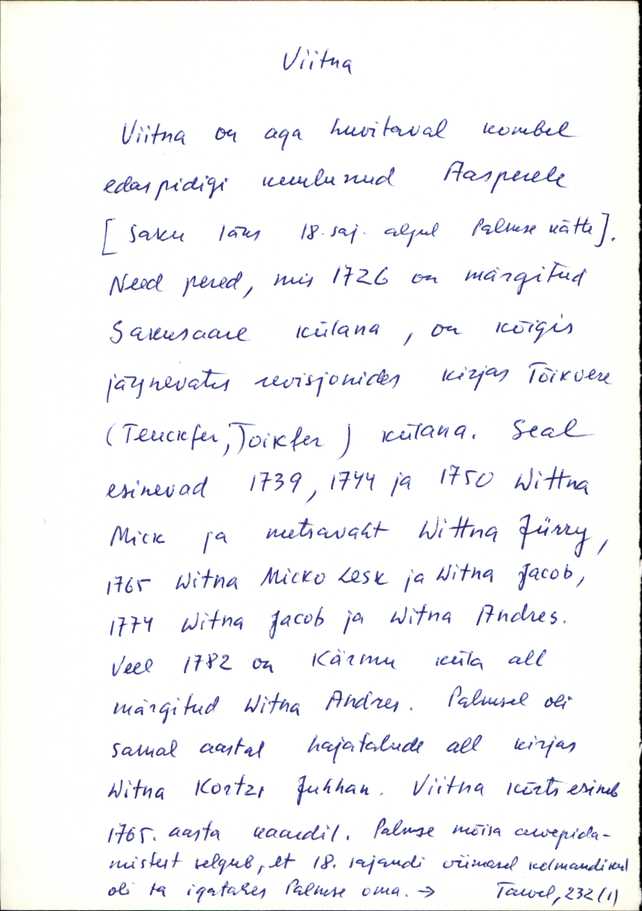 Viitna
Viitna on aga huvitaval kombel
edaspidigi kuulunud Aaspere
[Saku läks 18. saj. algul Palmse kätte].
Need pered, mis 1726 on märgitud
Sakusaare külana, on kõigis
järgnevates revisjonides kirjas Tõikvere
(Teuckfer, Toikfer) külana. Seal
esinevad 1739, 1744 ja 1750 Wittna
Mick ja metsavaht Wittna Jürry,
1765 Witna Micko Lesk ja Witna Jacob,
1774 Witna Jacob ja Witna Andres.
Veel 1782 on Kärmu küla all
märgitud Witna Andres. Palmsel oli
samal aastal hajatalude all kirjas
Witna Kortzi Juhhan. Viitna kõrts esineb
1765. aasta kaardil. Palmse mõisa arvepida-
mistest selgub, et 18. sajandi viimasel veerandikul
oli ta igatahes Palmse oma. → Tarvel, 232(1)